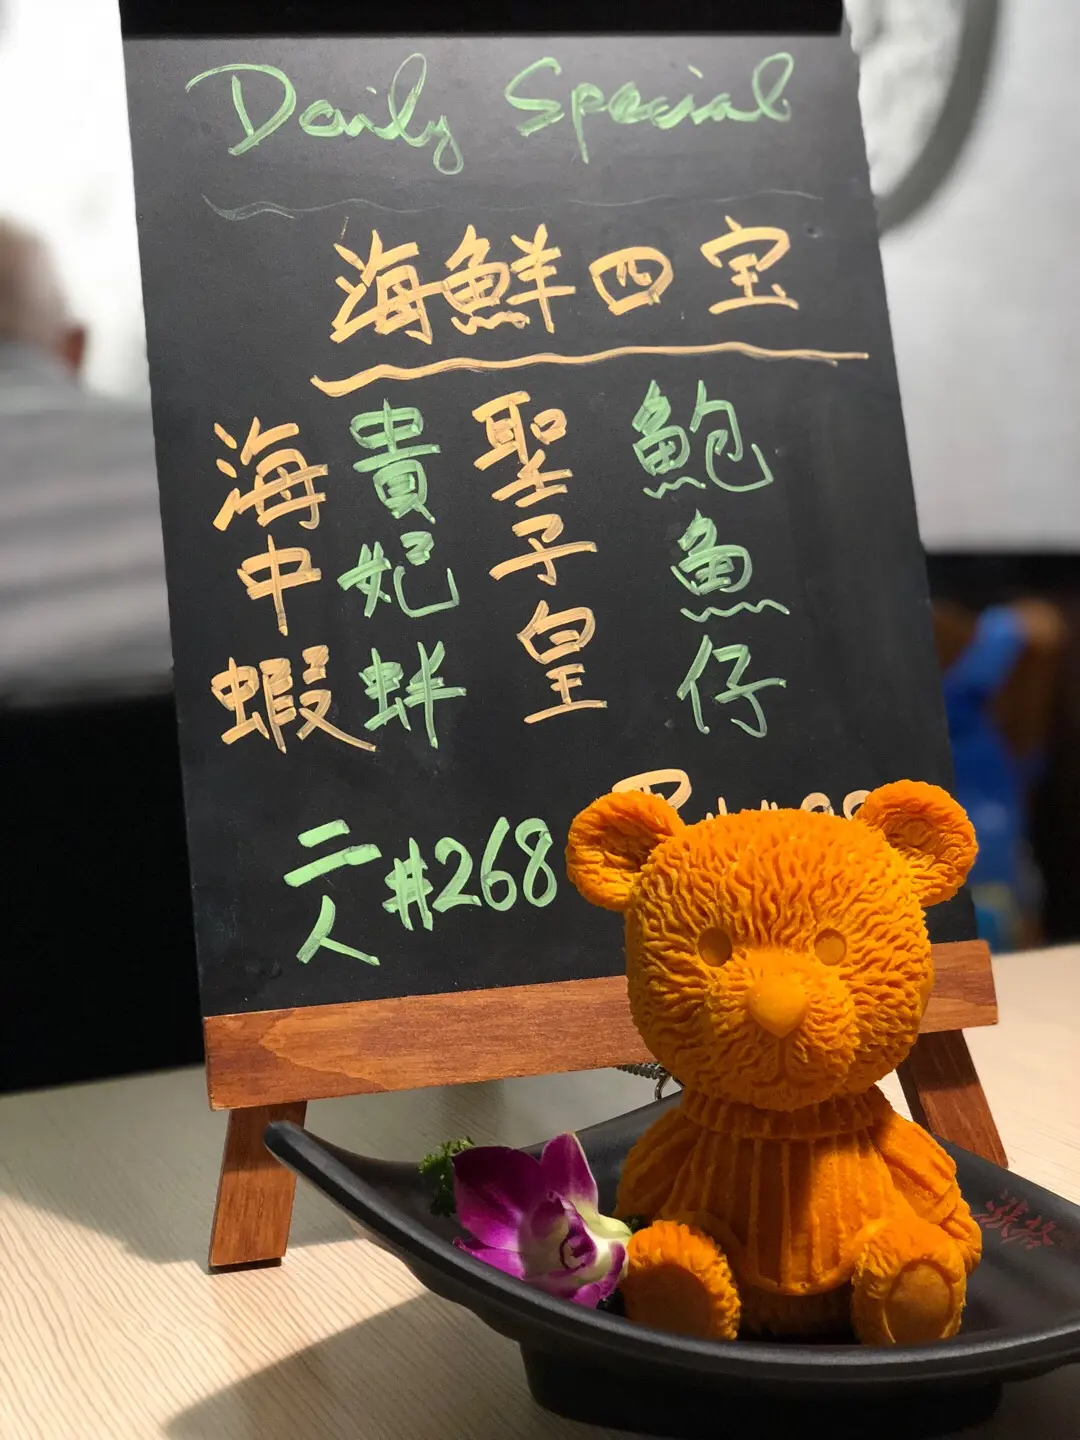 Daily Special
海鮮四宝
海中蝦
貴妃蚌
聖子皇
鮑魚仔
二人 #268